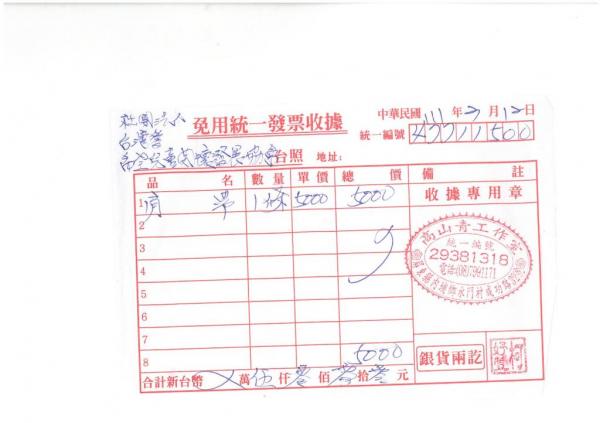 社團法人
台灣
免用統一發票收據
中華民國 111 年 月 12 日
統一編號
台照 地址:
品名 數量 單價 總價 備註
1 1條 5000 5000
收據專用章
2
3
4
5
6
7
8 5000
高山青工作室
統一編號
29381318
電話:(08)7991171
屏東縣內埔鄉水門村成功路
銀貨兩訖
合計新台幣 萬 伍 仟 零 佰 零 拾 零 元